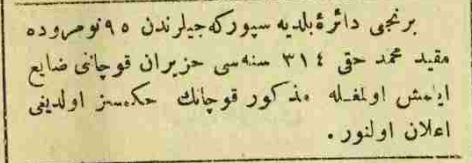 برنجی دائرهٔ بلدیه سپورکه جیلرندن ٩٥ نومروده
مقید محمد حقی ٣١٤ سنه سی حزیران قوچانی ضایع
ایلمش اولمغله مذکور قوچانك حکمسز اولدیغی
اعلان اولنور.